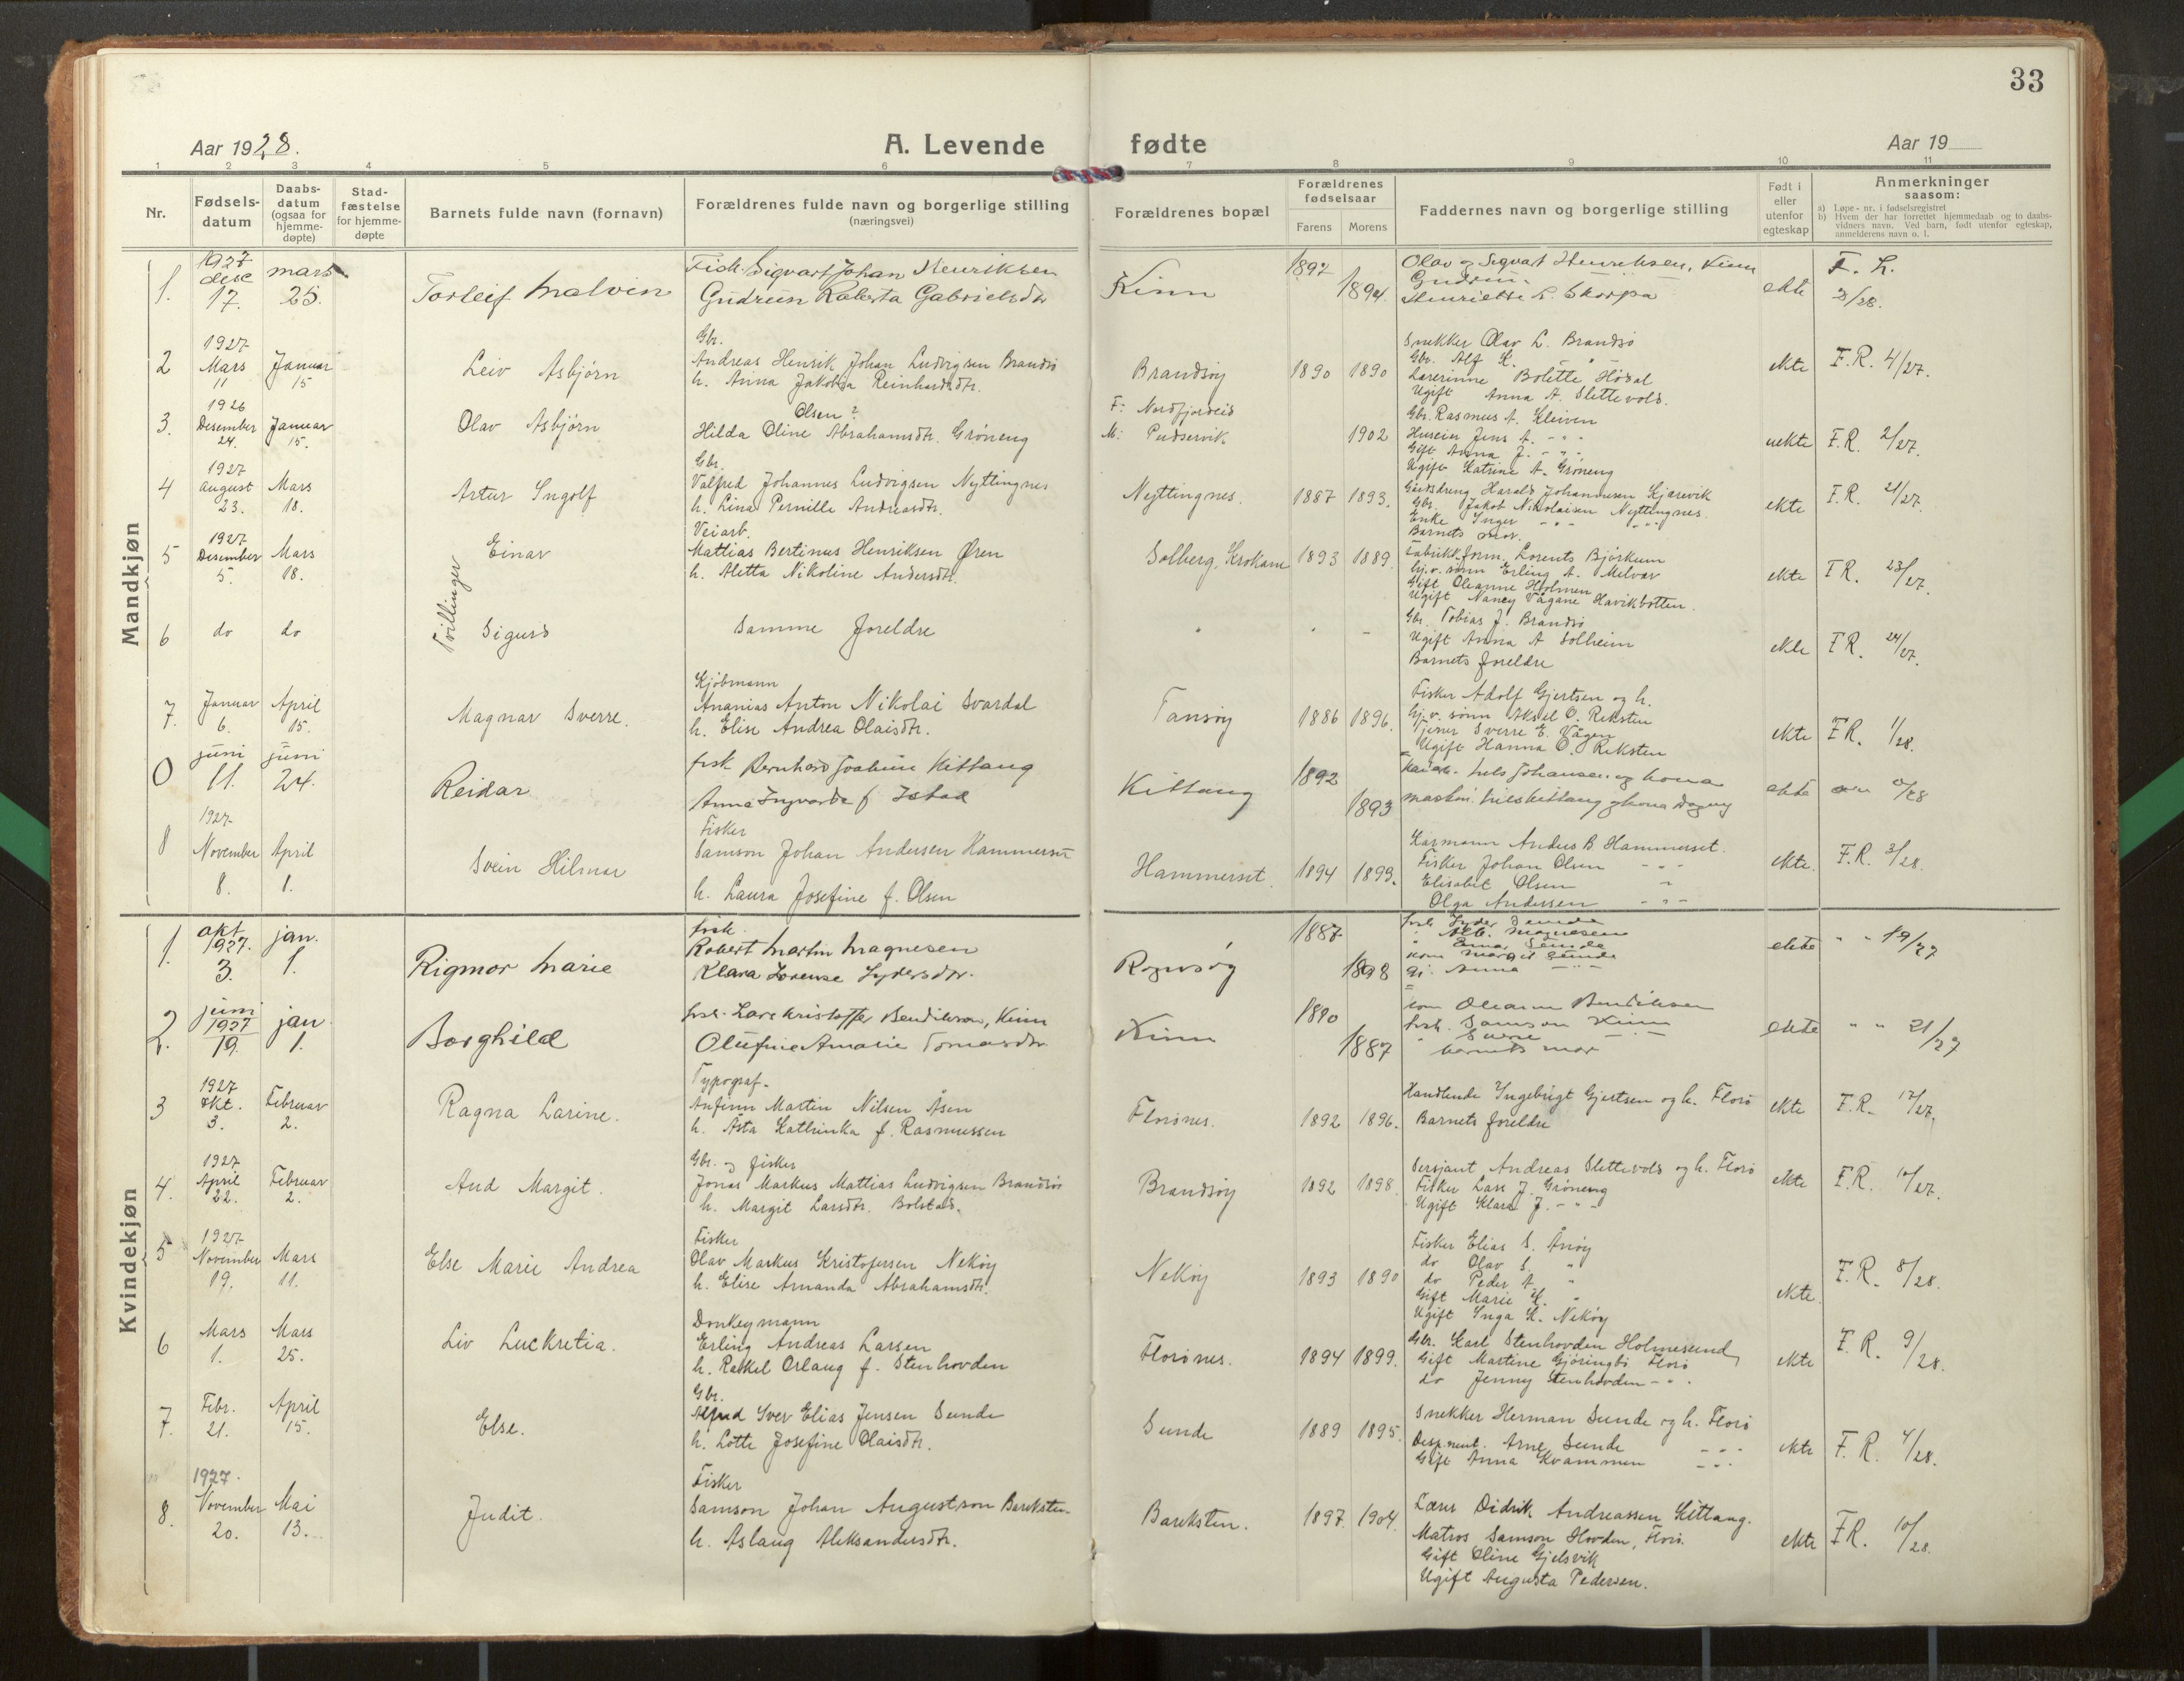 33
Aar 1928.
A. Levende fødte
Aar 19
1 2 3 4 5 6 7 8 9 10 11
Nr.
Fødsels-
datum
Daabs-
datum
(ogsaa for
hjemme-
døpte)
Stad-
fæstelse
for hjemme-
døpte
Barnets fulde navn (fornavn)
Forældrenes fulde navn og borgerlige stilling
(næringsvei)
Forældrenes bopæl
Forældrenes
fødselsaar
Farens Morens
Faddernes navn og borgerlige stilling
Født i
eller
utenfor
egteskap
Anmerkninger
saasom:
a) Løpe-nr. i fødselsregistret
b) Hvem der har forrettet hjemmedaab og to daabs-
vidners navn. Ved barn, født utenfor egteskap,
anmelderens navn o. l.
Mandkjøn
1. 1927 desc 17. mars 25. Torleif Malvin
Fisk. Sigvart Johan Henriksen
Gudrun Roberta Gabrielsdtr
Kinn 1897 1894
Olav og Sigvat Henriksen, Kinn
Gudrun
Henriette L. Skorpa
ekte F. R. 3/28.
2 1927 Mars 11 Januar 15 Leiv Asbjørn
Gbr.
Andreas Henrik Johan Ludvigsen Brandsø
h. Anna Jakobia Reinhardsdtr.
Brandsøy 1890 1890
Snekker Olav L. Brandsø
Gbr. Alf K. "
Lærerinne Bolette Hødal
Ugift Anna A. Slettevold.
ekte F.R. 4/27.
3. 1926 Desember 24. Januar 15. Olav Asbjørn
Olsen?
Hilda Oline Abrahamsdtr. Grøneng
F: Nordfjordeid
M: Pudservik 1902
Gbr. Rasmus A. Kleiven
Huseier Jens A. - " -
Gift Anna J. - " -
Ugift Katrine A. Grøneng
uekte F.R. 2/27.
4 1927 August 23. Mars 18. Artur Ingolf
Gbr.
Valfred Johannes Ludvigsen Nyttingnes
h. Lina Pernille Andreasdtr.
Nyttingnes. 1887 1893.
Gårdsdreng Harald Johannesen Kjørevik
Gbr. Jakob Nikolaisen Nyttingnes.
Enke Inger - " - - " -
Barnets mor.
ekte F.R. 21/27.
5 1927 Desember 5. Mars 18. Einar
Tvillinger
Veiarb.
Mattias Bertinus Henriksen Øren
h. Aletta Nikoline Andersdtr.
Solberg, Krokane 1893 1889.
Fabrikkform. Lorents Bjørkum
Gj.v. sønn Erling A. Melvær
Gift Oleanne Holmen
Ugift Nancy Vågane Havikbotten.
ekte F.R. 23/27.
6 do do Sigurd
Samme foreldre
" - -
Gbr. Tobias J. Brandsø
Ugift Anna A Solheim
Barnets foreldre
ekte F.R. 24/27.
7. Januar 6. April 15. Magnar Sverre.
Kjøbmann
Ananias Anton Nikolai Svardal
h. Elise Andrea Olaisdtr.
Tansøy 1886 1896.
Fisker Adolf Gjertsen og h.
Gj.v. sønn Aksel O. Reksten
Tjener Sverre E. Vågen
Ugift Hanna O. Reksten
ekte F.R. 1/28.
0 juni 11. juni 24. Reidar
fisk Bernhard Joakim Kittang
Anna Ingvarda f. Istad
Kittang 1892 1893
Nels Johansen og kona
maskin. Nils Kittang og kona Dagny
ekte
8 1927 November 8. April 1. Svein Hilmar
Fisker
Samson Johan Andersen Hammerset
h. Laura Josefine f. Olsen
Hammerset. 1894 1893.
Kårmann Anders B Hammerset.
Fisker Johan Olsen - " -
Elisabet Olsen "
Olga Andersen - " -
ekte. F.R. 3/28.
Kvindekjøn
1. okt 1927. 3. jan. 1. Rigmor Marie
fisk.
Robert Martin Magnesen
Klara Lorense Sydersdtr.
Rognsøy 1887 1898
Einar Sunde
kone Margit Sunde
gi. Anna - " -
ekte " " 19/27
2. juni 1927 19. jan. 1. Borghild
fisk. Lars Kristoffer Bendiksen, Kinn
Olufine Amalie Tomasdtr
Kinn 1890 1887
kone Oleanne Bendiksen
fisk. Samson Kinn
" Sverre - " -
barnets mor
ekte " " 21/27
3 1927 Okt. 3. Februar 2. Ragna Larine.
Typograf.
Anfinn Martin Nilsen Åsen
h. Asta Kathinka f. Rasmussen
Florønes. 1892 1896.
Handlende Ingebrigt Gjertsen og h. Florø
Barnets foreldre
ekte F.R. 17/27.
4. 1927 April 22. Februar 2. Aud Margit.
Gbr. og fisker
Jonas Markus Mattias Ludvigsen Brandsø
h. Margit Larsdtr. Bolstad.
Brandsøy 1892 1898.
Sersjant Andreas Slettevold og h. Florø
Fisker Lars J. Grøneng
Ugift Klara J. - " -
ekte F.R. 10/27.
5 1927 November 19. Mars 11. Else Marie Andrea
Fisker
Olav Markus Kristofersen Nekøy
h. Elise Amanda Abrahamsdtr.
Nekøy 1893 1890
Fisker Elias S. Årøy
do Olav S. "
do Peder A. "
Gift Marie K. "
Ugift Inga K. Nekøy
ekte. F.R. 8/28.
6 Mars 1. Mars 25. Liv Luckretia.
Donkeymann
Erling Andreas Larsen
h. Rakkel Orlaug f. Stenhovden
Florønes. 1894 1899.
Gbr. Karl Stenhovden Holmesund
Gift Martine Gjøringbø Florø
do Jenny Stenhovden - " -
ekte F.R. 9/28.
7. Febr. 21. April 15. Else.
Gbr.
Alfred Iver Elias Jensen Sunde
h. Lotte Josefine Olaisdtr.
Sunde 1889 1895.
Snekker Herman Sunde og h. Florø
Arne Sunde - " -
Gift Anna Kvammen - " -
ekte F.R. 4/28.
8. 1927. November 20. Mai 13. Judit.
Fisker
Samson Johan Augustson Bareksten
h. Aslaug Aleksandersdtr.
Bareksten. 1897. 1904.
Lærer Didrik Andreassen Kittang.
Matros Samson Hovden, Florø.
Gift Oline Gjelsvik
Ugift Augusta Pedersen.
ekte F.R. 10/28.